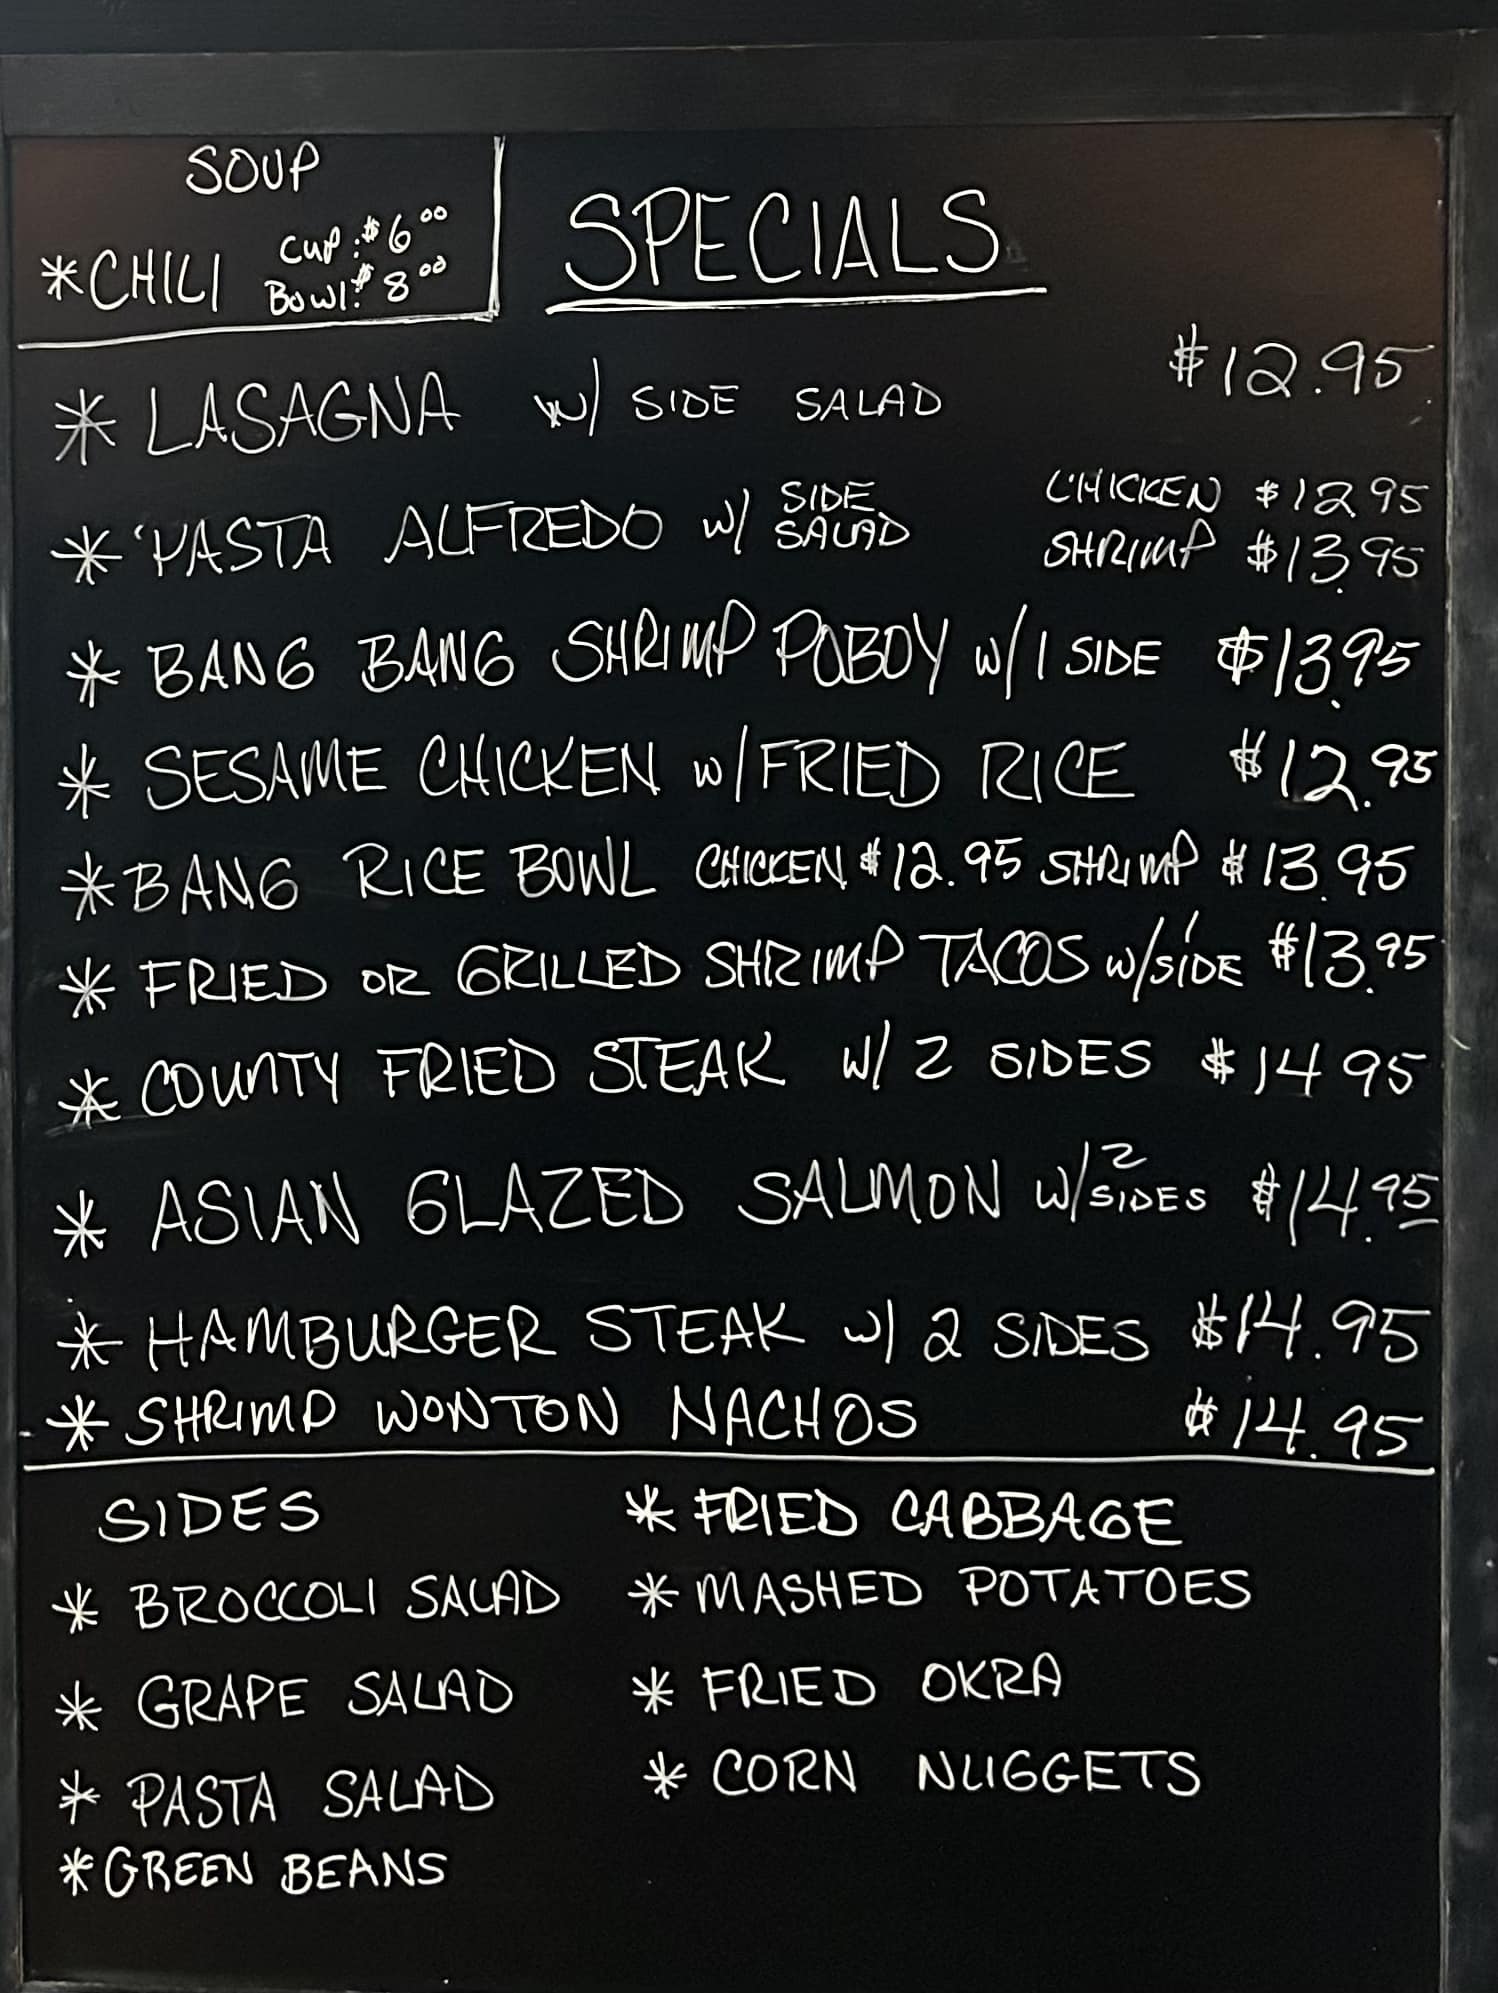 SOUP
*CHILI Cup: $6.00
Bowl: $8.00
SPECIALS
* LASAGNA w/ SIDE SALAD $12.95
* PASTA ALFREDO w/ SIDE SALAD CHICKEN $12.95
SHRIMP $13.95
* BANG BANG SHRIMP POBOY w/ 1 SIDE $13.95
* SESAME CHICKEN w/ FRIED RICE $12.95
* BANG RICE BOWL CHICKEN $12.95 SHRIMP $13.95
* FRIED OR GRILLED SHRIMP TACOS w/ 1 SIDE $13.95
* COUNTY FRIED STEAK w/ 2 SIDES $14 95
* ASIAN GLAZED SALMON w/ 2 SIDES $14.95
* HAMBURGER STEAK w/ 2 SIDES $14.95
* SHRIMP WONTON NACHOS $14.95
SIDES
* BROCCOLI SALAD
* GRAPE SALAD
* PASTA SALAD
* GREEN BEANS
* FRIED CABBAGE
* MASHED POTATOES
* FRIED OKRA
* CORN NUGGETS